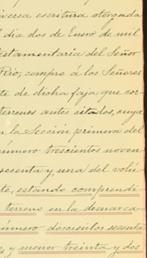 diversa escritura otorgada
día dos de Enero de mil
testamentaria del Señor
Río; compro á los Señores
te de dicha faja que cor
terrenos antes citados, cuya
en la Sección primera del
número trescientos noven
sesenta y una del volú
te, estando comprendi
terreno en la demarca
número doscientos sesenta
y menor treinta y dos